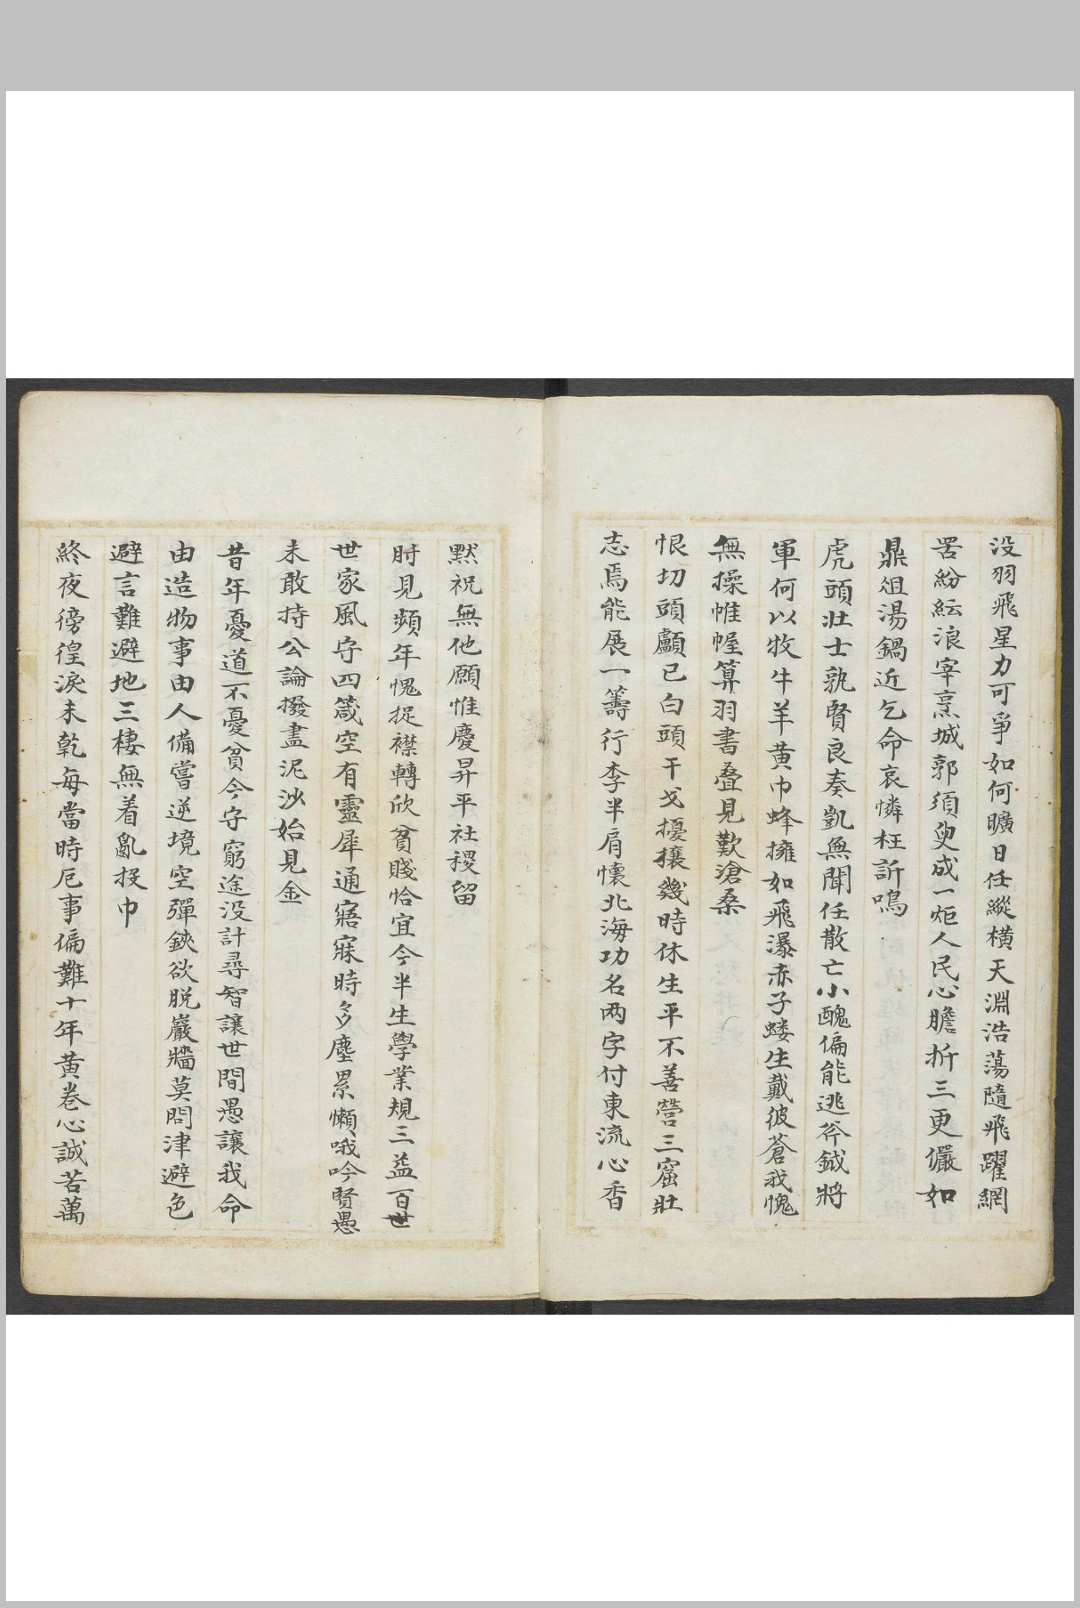 没羽飛星力可爭如何曠日任縱橫天淵浩蕩隨飛躍網
罟紛紜浪宰烹城郭須臾成一炬人民心膽折三更儼如
鼎俎湯鍋近乞命哀憐枉訴鳴
虎頭壯士孰賢良奏凱無聞任散亡小醜偏能逃斧鉞將
軍何以牧牛羊黃巾蜂擁如飛瀑赤子螻生戴彼蒼我愧
無操帷幄算羽書叠見歎滄桑
恨切頭顱已白頭干戈擾攘幾時休生平不善營三窟壯
志焉能展一籌行李半肩懷北海功名两字付東流心香
默祝無他願惟慶昇平社稷留
肘見頻年愧捉襟轉欣貧賤恰宜今半生學業規三益百世
世家風守四箴空有靈犀通寤寐時多塵累懶哦吟賢愚
未敢持公論撥盡泥沙始見金
昔年憂道不憂貧今守窮途没計尋智讓世間愚讓我命
由造物事由人備嘗逆境空彈鋏欲脱巖牆莫問津避色
避言難避地三棲無着亂投巾
終夜徬徨淚未乾每當時厄事偏難十年黃卷心誠苦萬